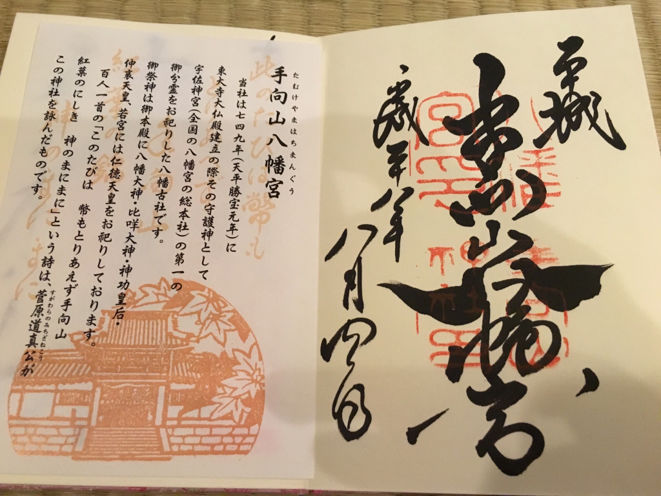 平城
手向山八幡宮
八月四日
たむけやまはちまんぐう
手向山八幡宮
当社は七四九年(天平勝宝元年)に
東大寺大仏殿建立の際その守護神として
宇佐神宮(全国の八幡宮の総本社)の第一の
御分霊をお祀りした八幡古社です。
御祭神は御本殿に八幡大神・比咩大神・神功皇后・
仲哀天皇、若宮には仁徳天皇をお祀りしております。
百人一首の「このたびは 幣もとりあえず手向山
紅葉のにしき 神のまにまに」という詩は、菅原道真公が
すがわらのみちざねこう
この神社を詠んだものです。
此のたびは幣も